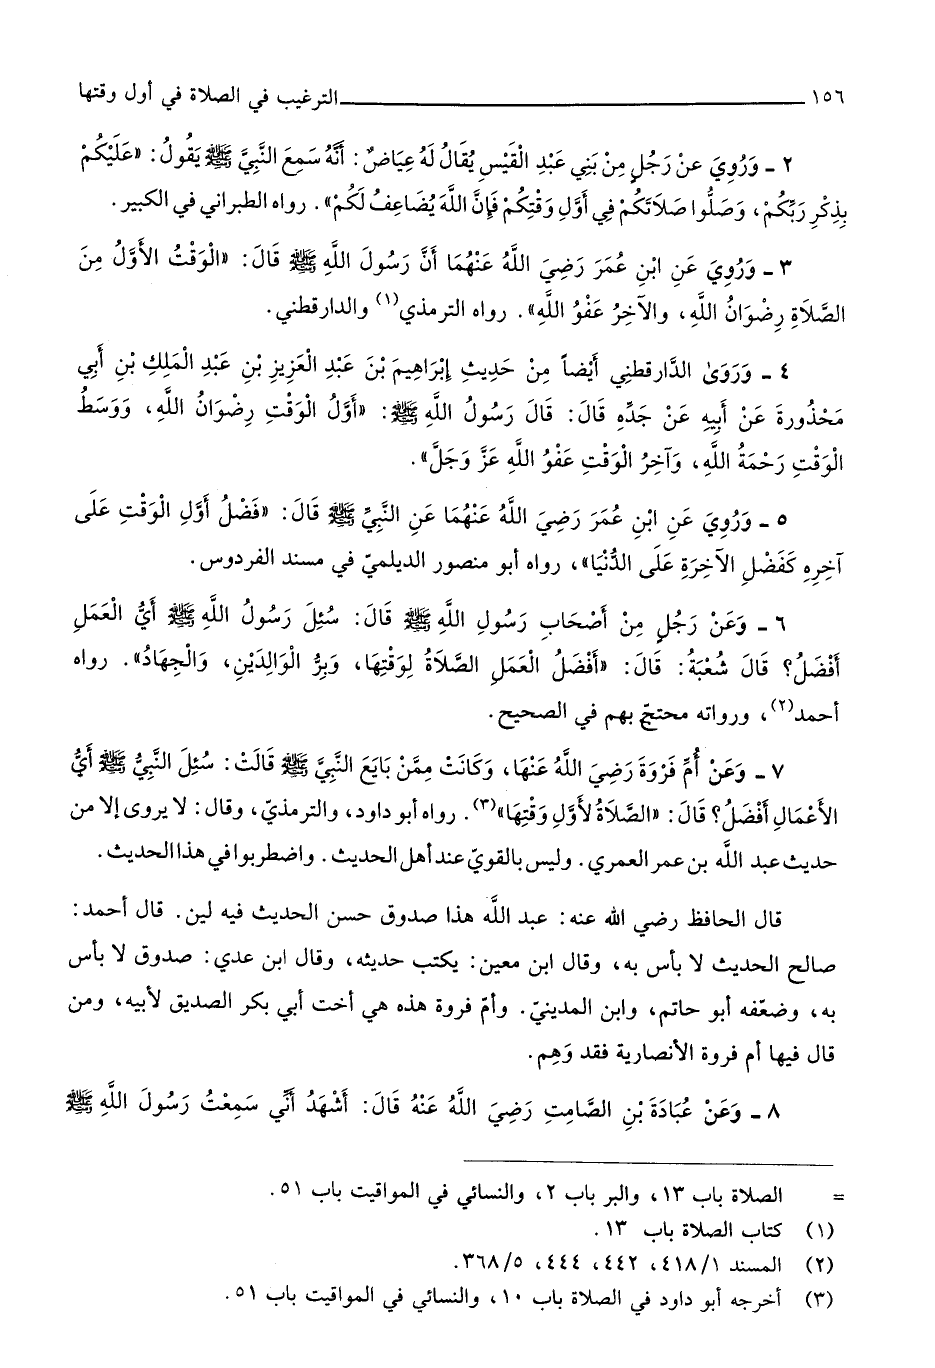 ١٥٦ ـ الترغيب في الصلاة في أول وقتها
٢ ـ وَرُوِيَ عنْ رَجُلٍ مِنْ بَنِي عَبْدِ الْقَيْسِ يُقَالُ لَهُ عِيَاضٌ: أَنَّهُ سَمِعَ النَّبِيَّ ﷺ يَقُولُ: «عَلَيْكُمْ
بِذِكْرِ رَبِّكُمْ، وَصَلُّوا صَلَاتَكُمْ فِي أَوَّلِ وَقْتِكُمْ فَإِنَّ اللَّهَ يُضَاعِفُ لَكُمْ». رواه الطبراني في الكبير.
٣ ـ وَرُوِيَ عَنِ ابْنِ عُمَرَ رَضِيَ اللَّهُ عَنْهُمَا أَنَّ رَسُولَ اللَّهِ ﷺ قَالَ: «الْوَقْتُ الأَوَّلُ مِنَ
الصَّلَاةِ رِضْوَانُ اللَّهِ، والآخِرُ عَفْوُ اللَّهِ». رواه الترمذي(١) والدارقطني.
٤ ـ وَرَوَىٰ الدَّارقطنِي أَيْضاً مِنْ حَدِيثِ إِبْرَاهِيمَ بْنَ عَبْدِ الْعَزِيزِ بْنِ عَبْدِ الْمَلِكِ بْنِ أَبِي
مَحْذُورةَ عَنْ أَبِيهِ عَنْ جَدِّهِ قَالَ: قَالَ رَسُولُ اللَّهِ ﷺ: «أَوَّلُ الْوَقْتِ رِضْوَانُ اللَّهِ، وَوَسَطُ
الْوَقْتِ رَحْمَةُ اللَّهِ، وَآخِرُ الْوَقْتِ عَفْوُ اللَّهِ عَزَّ وَجَلَّ».
٥ ـ وَرُوِيَ عَنِ ابْنِ عُمَرَ رَضِيَ اللَّهُ عَنْهُمَا عَنِ النَّبِيِّ ﷺ قَالَ: «فَضْلُ أَوَّلِ الْوَقْتِ عَلَى
آخِرِهِ كَفَضْلِ الآخِرَةِ عَلَى الدُّنْيَا»، رواه أبو منصور الديلميّ في مسند الفردوس.
٦ ـ وَعَنْ رَجُلٍ مِنْ أَصْحَابِ رَسُولِ اللَّهِ ﷺ قَالَ: سُئِلَ رَسُولُ اللَّهِ ﷺ أَيُّ الْعَمَلِ
أَفْضَلُ؟ قَالَ شُعْبَةُ: قَالَ: «أَفْضَلُ الْعَمَلِ الصَّلَاةُ لِوَقْتِهَا، وَبِرُّ الْوَالِدَيْنِ، وَالْجِهَادُ». رواه
أحمد(٢)، ورواته محتجّ بهم في الصحيح.
٧ ـ وَعَنْ أُمِّ فَرْوَةَ رَضِيَ اللَّهُ عَنْهَا، وَكَانَتْ مِمَّنْ بَايَعَ النَّبِيَّ ﷺ قَالَتْ: سُئِلَ النَّبِيُّ ﷺ أَيُّ
الأَعْمَالِ أَفْضَلُ؟ قَالَ: «الصَّلَاةُ لأَوَّلِ وَقْتِهَا»(٣). رواه أبو داود، والترمذيّ، وقال: لا يروى إلا من
حديث عبد اللَّه بن عمر العمري. وليس بالقويّ عند أهل الحديث. واضطربوا في هذا الحديث.
قال الحافظ رضي الله عنه: عبد اللَّه هذا صدوق حسن الحديث فيه لين. قال أحمد:
صالح الحديث لا بأس به، وقال ابن معين: يكتب حديثه، وقال ابن عدي: صدوق لا بأس
به، وضعّفه أبو حاتم، وابن المدينيّ. وأمّ فروة هذه هي أخت أبي بكر الصديق لأبيه، ومن
قال فيها أم فروة الأنصارية فقد وَهِم.
٨ ـ وَعَنْ عُبَادَةَ بْنِ الصَّامِتِ رَضِيَ اللَّهُ عَنْهُ قَالَ: أَشْهَدُ أَنِّي سَمِعْتُ رَسُولَ اللَّهِ ﷺ
= الصلاة باب ١٣، والبر باب ٢، والنسائي في المواقيت باب ٥١.
(١) كتاب الصلاة باب ١٣.
(٢) المسند ٤١٨/١، ٤٤٢، ٤٤٤، ٣٦٨/٥.
(٣) أخرجه أبو داود في الصلاة باب ١٠، والنسائي في المواقيت باب ٥١.